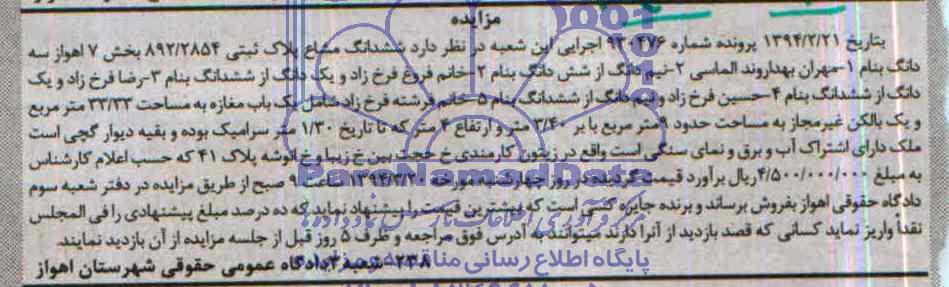 مزایده
بتاریخ ۱۳۹۴/۲/۲۱ پرونده شماره ۹۳۰۴۷۶ اجرایی این شعبه در نظر دارد ششدانگ مشاع پلاک ثبتی ۸۹۲/۲۸۵۴ بخش ۷ اهواز سه
دانگ بنام ۱-مهران بهداروند الماسی ۲-نیم دانگ از شش دانگ بنام ۲-خانم فروغ فرخ زاد و یک دانگ از ششدانگ بنام ۳-رضا فرخ زاد و یک
دانگ از ششدانگ بنام ۴-حسین فرخ زاد و نیم دانگ از ششدانگ بنام ۵-خانم فرشته فرخ زاد شامل یک باب مغازه به مساحت ۳۳/۳۳ متر مربع
و یک بالکن غیرمجاز به مساحت حدود ۹متر مربع با بر ۳/۴۰ متر و ارتفاع ۴ متر که تا تاریخ ۱/۳۰ متر سرامیک بوده و بقیه دیوار گچی است
ملک دارای اشتراک آب و برق و نمای سنگی است واقع در زیتون کارمندی خ حجت بین خ زیبا و خ انوشه پلاک ۴۱ که حسب اعلام کارشناس
به مبلغ ۴/۵۰۰/۰۰۰/۰۰۰ریال برآورد قیمت گردیده در روز چهارشنبه مورخه ۱۳۹۴/۳/۲۰ ساعت ۹ صبح از طریق مزایده در دفتر شعبه سوم
دادگاه حقوقی اهواز بفروش برساند و برنده جایزه کسی است که بیشترین قیمت را پیشنهاد نماید که ده درصد مبلغ پیشنهادی را فی المجلس
نقداً واریز نماید کسانی که قصد بازدید از آنرا دارند میتوانند به آدرس فوق مراجعه و ظرف ۵ روز قبل از جلسه مزایده از آن بازدید نمایند.
۲۳۸-شعبه ۳ دادگاه عمومی حقوقی شهرستان اهواز
ParsNamadData
پایگاه اطلاع رسانی مناقصه و مزایده